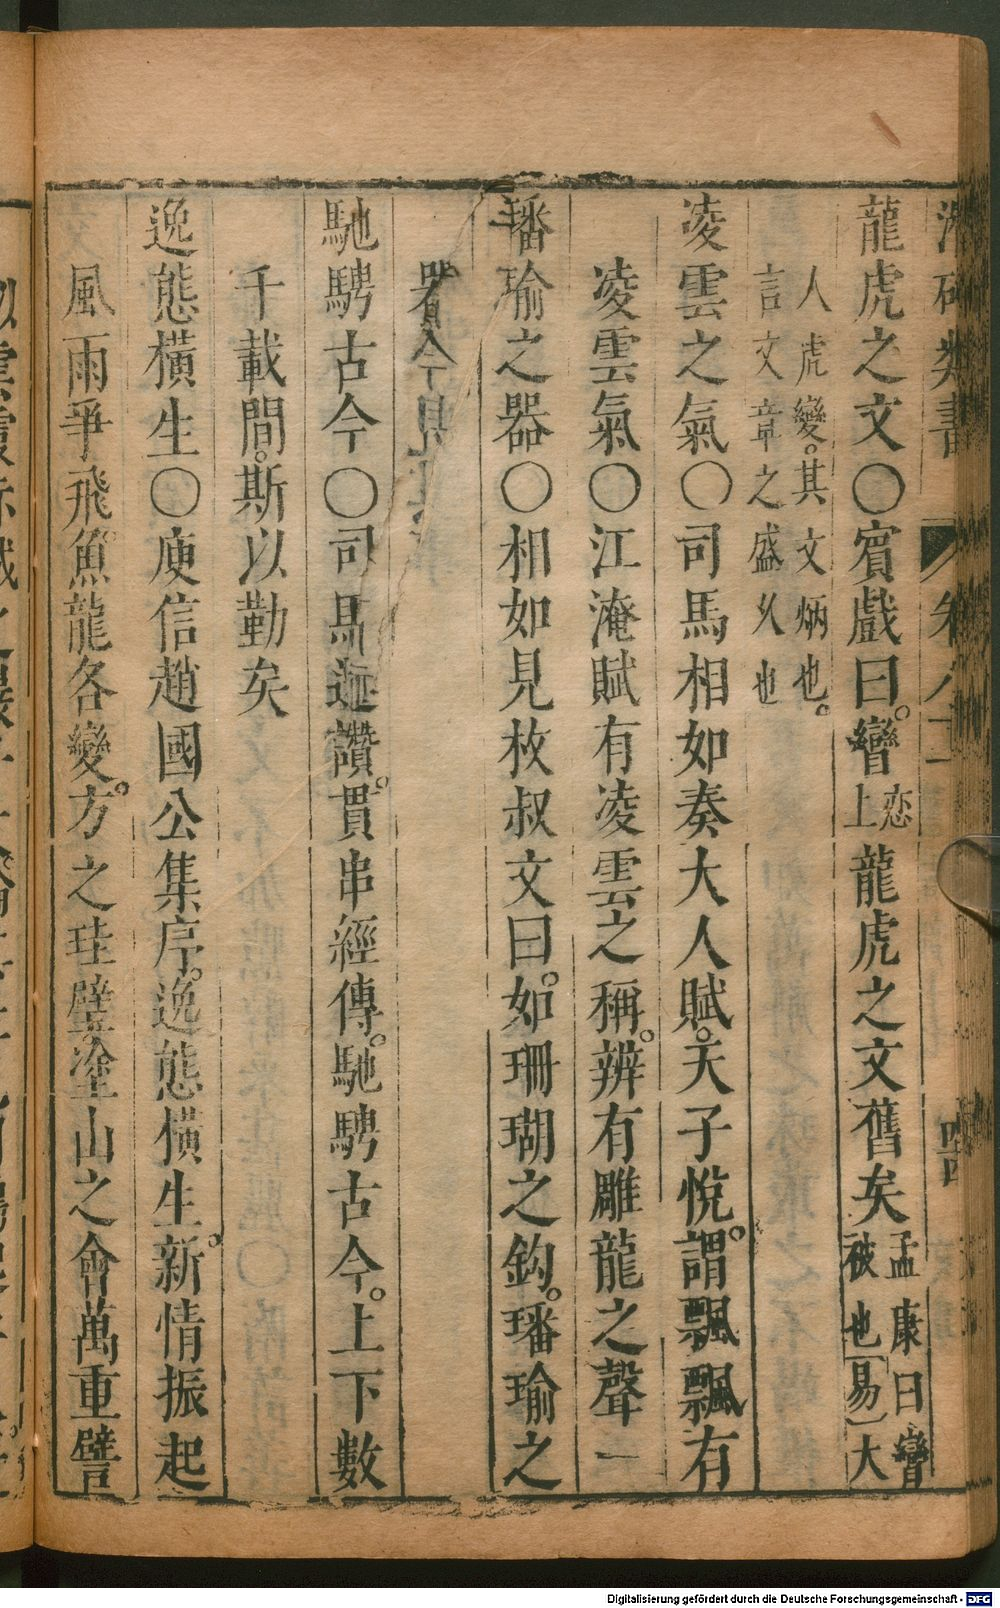 龍虎之文○賓戲曰。㬫上恋龍虎之文舊矣孟康曰㬫被也〔易〕大
人虎變。其文炳也。言文章之盛久也
凌雲之氣○司馬相如奏大人賦。天子悅。謂飄飄有
凌雲氣○江淹賦有凌雲之稱。辨有雕龍之聲一
璠瑜之器○相如見枚叔文曰。如珊瑚之鈎。璠瑜之
器
馳騁古今○司馬遷讚。貫串經傳。馳騁古今。上下數
千載間。斯以勤矣
逸態橫生○庾信趙國公集序。逸態橫生。新情振起
風雨爭飛。魚龍各變。方之珪璧。塗山之會萬重譬
Digitalisierung gefördert durch die Deutsche Forschungsgemeinschaft - DFG